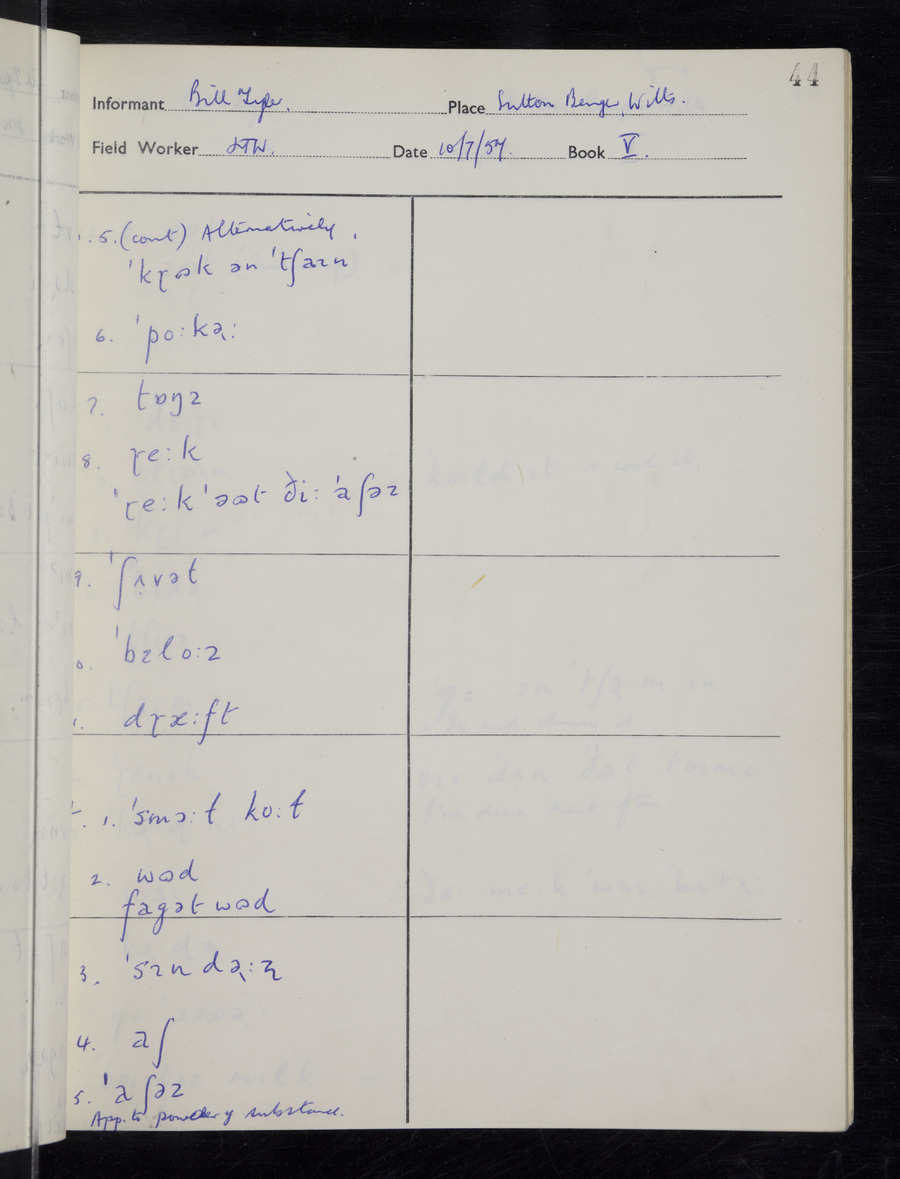 44
Informant Bill Place Sutton Benger, Wilts.
Field Worker JTW. Date 10/7/57. Book V.
5. (cont) Alternatively,
ˈkɽɷk ən ˈtʃaɪn
6. ˈpoːkə˞ː
7. tɒŋz
8. ɽeːk
ˈɽeːk ˈəɷt ðiː ˈaʃəz
9. ˈʃʌvət
0. ˈbɛloːz
dɽæːft
1. ˈsmɔːt koːt
2. wɷd
fagət wɷd
3. ˈsɪndə˞ːz̩
4. aʃ
5. ˈaʃəz
App. to powdery substance.